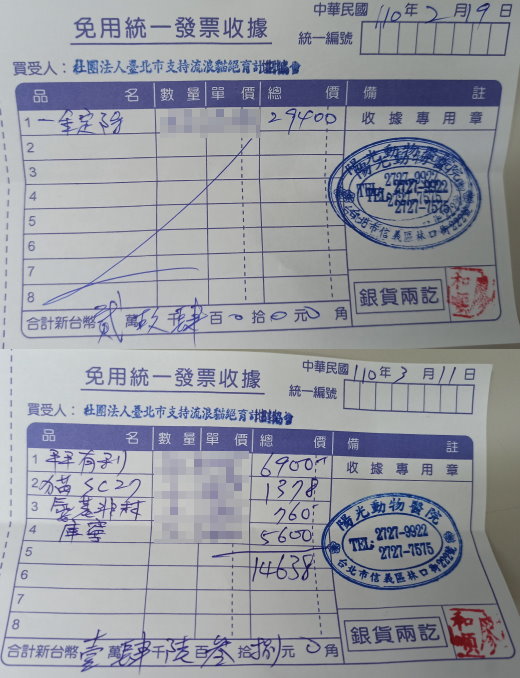 免用統一發票收據
中華民國 110年 2月 19日
統一編號
買受人：社團法人臺北市支持流浪貓絕育計劃協會
品名 數量 單價 總價 備註
1 一錠除 29400 收據專用章
2
3
4
5
6
7
8
陽光動物醫院
TEL: 2727-9922
2727-7575
台北市信義區林口街222號
銀貨兩訖
合計新台幣 貳萬玖千肆百0拾0元0角
免用統一發票收據
中華民國 110年 3月 11日
統一編號
買受人：社團法人臺北市支持流浪貓絕育計劃協會
品名 數量 單價 總價 備註
1 6900 收據專用章
2 貓SC27 1378
3 760
4 庫寧 5600
5
6 14638
7
8
陽光動物醫院
TEL: 2727-9922
2727-7575
台北市信義區林口街222號
銀貨兩訖
合計新台幣 壹萬肆千陸百叁拾捌元0角